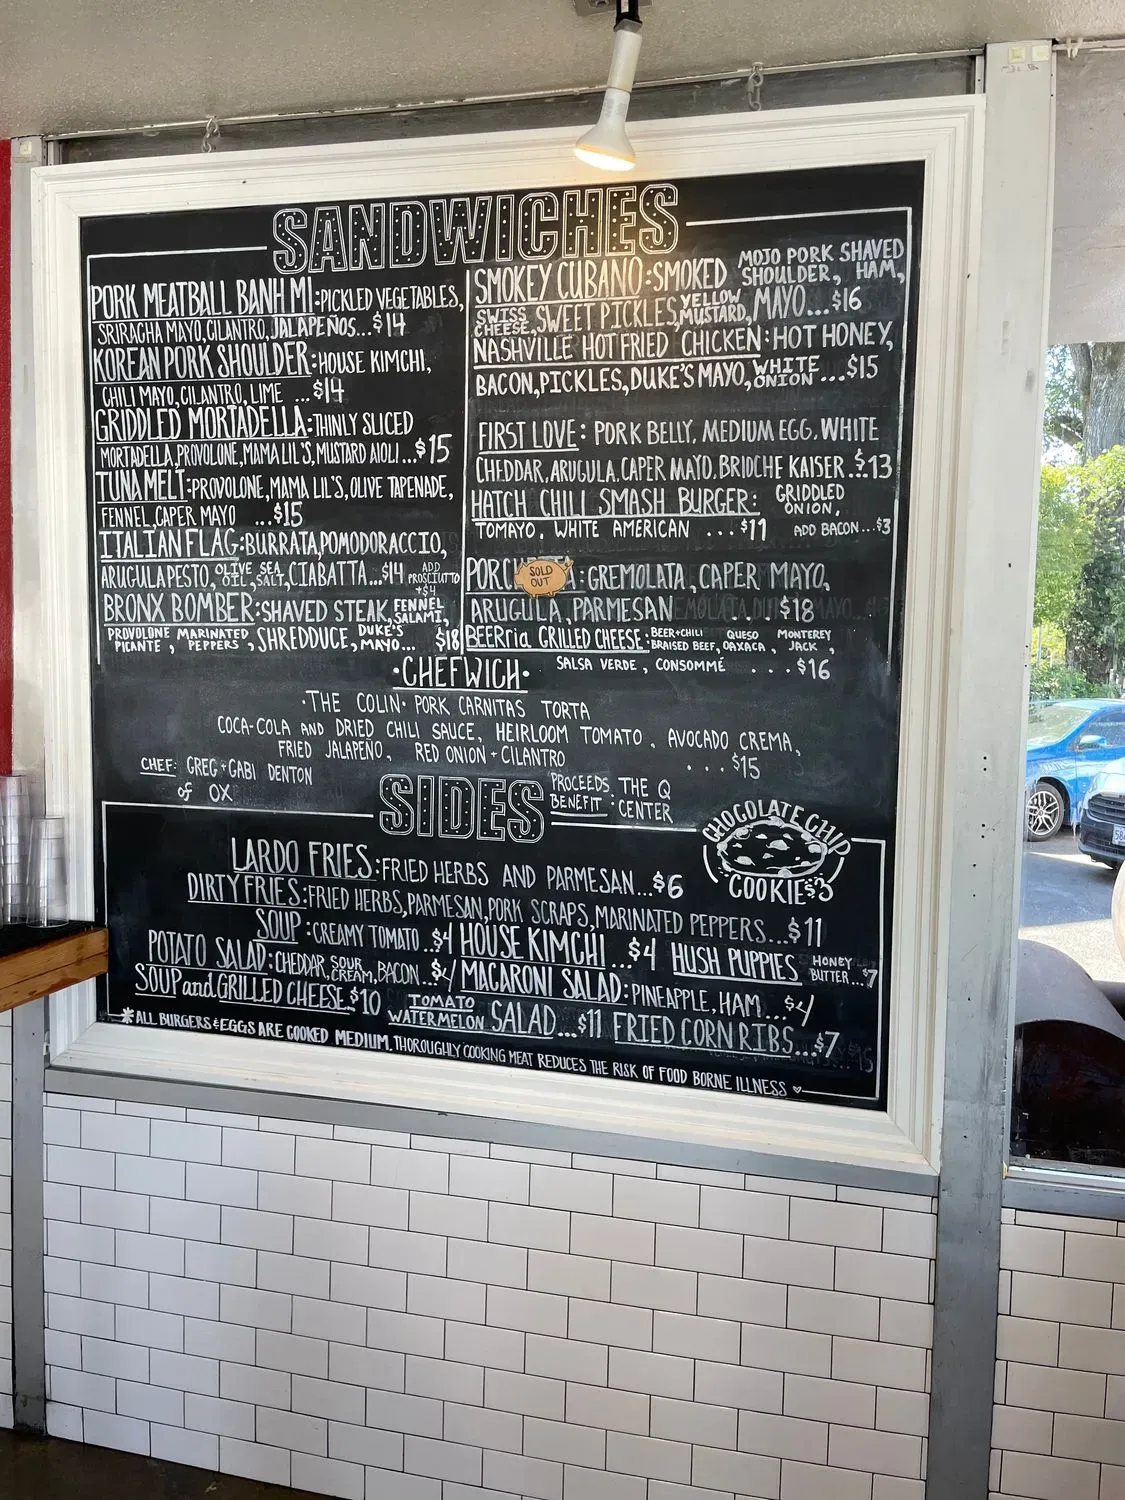 SANDWICHES
PORK MEATBALL BANH MI: PICKLED VEGETABLES,
SRIRACHA MAYO, CILANTRO, JALAPEÑOS...$14
KOREAN PORK SHOULDER: HOUSE KIMCHI,
CHILI MAYO, CILANTRO, LIME ...$14
GRIDDLED MORTADELLA: THINLY SLICED
MORTADELLA, PROVOLONE, MAMA LIL'S, MUSTARD AIOLI...$15
TUNA MELT: PROVOLONE, MAMA LIL'S, OLIVE TAPENADE,
FENNEL, CAPER MAYO ...$15
ITALIAN FLAG: BURRATA, POMODORACCIO,
ARUGULA PESTO, OLIVE OIL, SEA SALT, CIABATTA...$14 ADD PROSCIUTTO +$4
BRONX BOMBER: SHAVED STEAK, FENNEL SALAMI,
PROVOLONE PICANTE, MARINATED PEPPERS, SHREDDUCE, DUKE'S MAYO... $18
SMOKEY CUBANO: SMOKED MOJO PORK SHOULDER, SHAVED HAM,
SWISS CHEESE, SWEET PICKLES, YELLOW MUSTARD, MAYO...$16
NASHVILLE HOT FRIED CHICKEN: HOT HONEY,
BACON, PICKLES, DUKE'S MAYO, WHITE ONION ...$15
FIRST LOVE: PORK BELLY, MEDIUM EGG, WHITE
CHEDDAR, ARUGULA, CAPER MAYO, BRIOCHE KAISER..$13
HATCH CHILI SMASH BURGER: GRIDDLED ONION,
TOMAYO, WHITE AMERICAN ...$11 ADD BACON...$3
PORCH SOLD OUT A: GREMOLATA, CAPER MAYO,
ARUGULA, PARMESAN ...$18
BEERria GRILLED CHEESE: BEER+CHILI BRAISED BEEF, QUESO OAXACA, MONTEREY JACK,
SALSA VERDE, CONSOMMÉ ...$16
·CHEFWICH·
·THE COLIN· PORK CARNITAS TORTA
COCA-COLA AND DRIED CHILI SAUCE, HEIRLOOM TOMATO, AVOCADO CREMA,
FRIED JALAPEÑO, RED ONION + CILANTRO
...$15
CHEF: GREG + GABI DENTON
of OX
PROCEEDS BENEFIT: THE Q CENTER
SIDES
CHOCOLATE CHIP
COOKIE $3
LARDO FRIES: FRIED HERBS AND PARMESAN...$6
DIRTY FRIES: FRIED HERBS, PARMESAN, PORK SCRAPS, MARINATED PEPPERS...$11
SOUP: CREAMY TOMATO..$4 HOUSE KIMCHI ...$4 HUSH PUPPIES HONEY BUTTER..$7
POTATO SALAD: CHEDDAR, SOUR CREAM, BACON..$4 MACARONI SALAD: PINEAPPLE, HAM...$4
SOUP and GRILLED CHEESE..$10 TOMATO WATERMELON SALAD...$11 FRIED CORN RIBS...$7
*ALL BURGERS & EGGS ARE COOKED MEDIUM. THOROUGHLY COOKING MEAT REDUCES THE RISK OF FOOD BORNE ILLNESS ♥